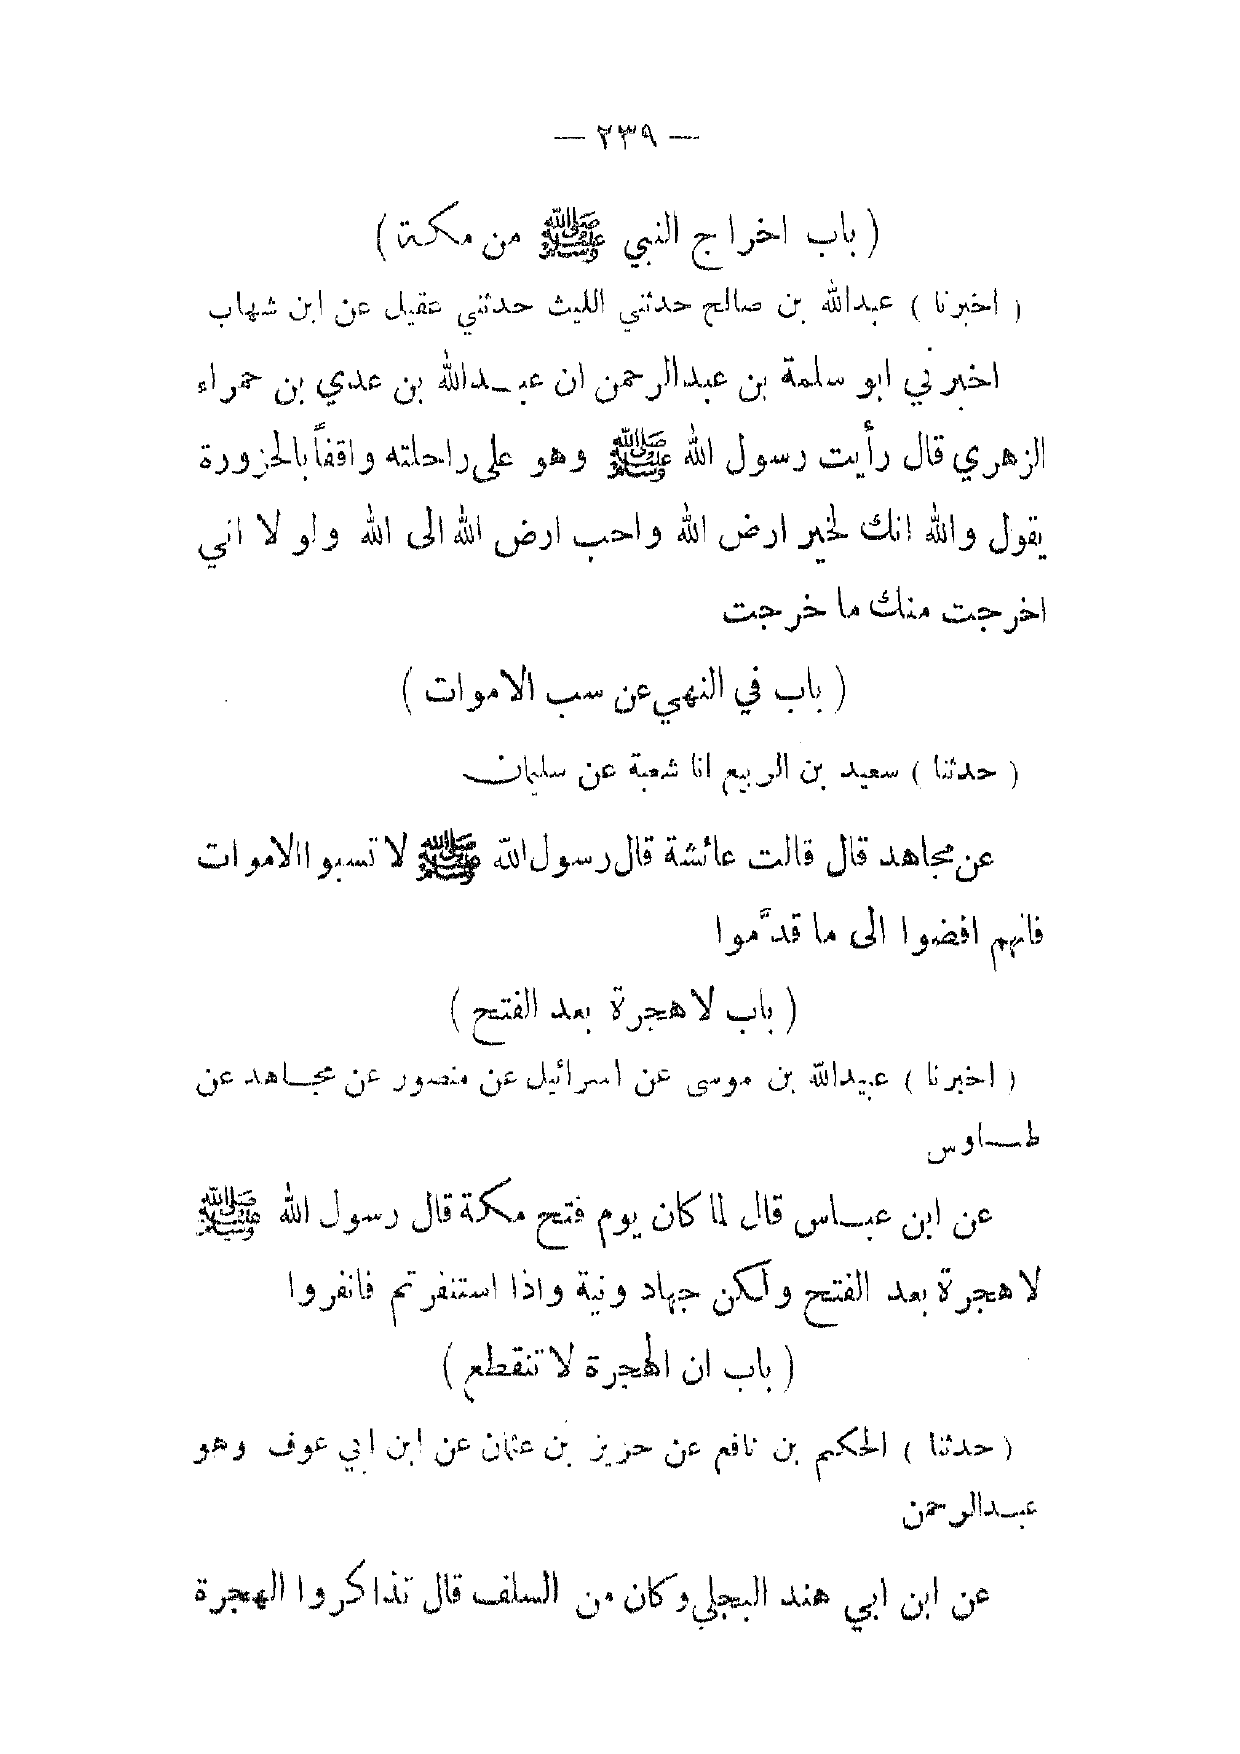 — ٢٣٩ —
( باب اخراج النبي ﷺ من مكة )
( اخبرنا ) عبدالله بن صالح حدثني الليث حدثني عقيل عن ابن شهاب
اخبرني ابو سلمة بن عبدالرحمن ان عبدالله بن عدي بن حمراء
الزهري قال رأيت رسول الله ﷺ وهو على راحلته واقفاً بالحزورة
يقول والله انك لخير ارض الله واحب ارض الله الى الله ولو لا اني
اخرجت منك ما خرجت
( باب في النهي عن سب الاموات )
( حدثنا ) سعيد بن الربيع انا شعبة عن سليمان
عن مجاهد قال قالت عائشة قال رسول الله ﷺ لا تسبوا الاموات
فانهم افضوا الى ما قدَّموا
( باب لا هجرة بعد الفتح )
( اخبرنا ) عبيدالله بن موسى عن اسرائيل عن منصور عن مجاهد عن
طاوس
عن ابن عباس قال لما كان يوم فتح مكة قال رسول الله ﷺ
لا هجرة بعد الفتح ولكن جهاد ونية واذا استنفرتم فانفروا
( باب ان الهجرة لا تنقطع )
( حدثنا ) الحكم بن نافع عن حريز بن عثمان عن ابن ابي عوف وهو
عبدالرحمن
عن ابن ابي هند البجلي وكان من السلف قال تذاكروا الهجرة